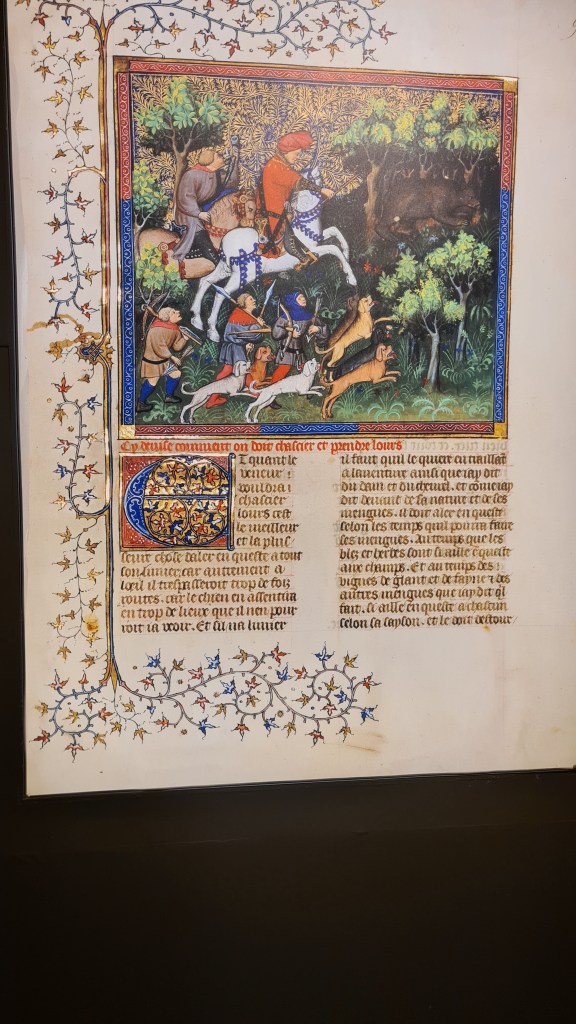 Cy devise comment on doit chascier et prendre lours
ET quant le
veneur
vouldra
chascier
lours cest
le meilleur
et la plus
seure chose daler en queste a tout
son limier car autrement a
loeil il trespasseroit trop de foiz
routes. car le chien en assentira
en trop de lieux que il nen pour
roit ia veoir. Et sil na limier
il faut quil le quier en taillant
a laventure ainsi que iay dit
du dain et du chevrel. et come iay
dit devant de sa nature et de ses
mengues. il doit aler en queste
selon les temps quil pourra faire
ses mengues. Au temps que les
blez et herbes sont sa aille en queste
aux champs. Et au temps des
vignes de glant et de fayne et des
autres mengues que iay dit quil
fait. si aille en queste a chascun
selon sa sayson. et le doit destour